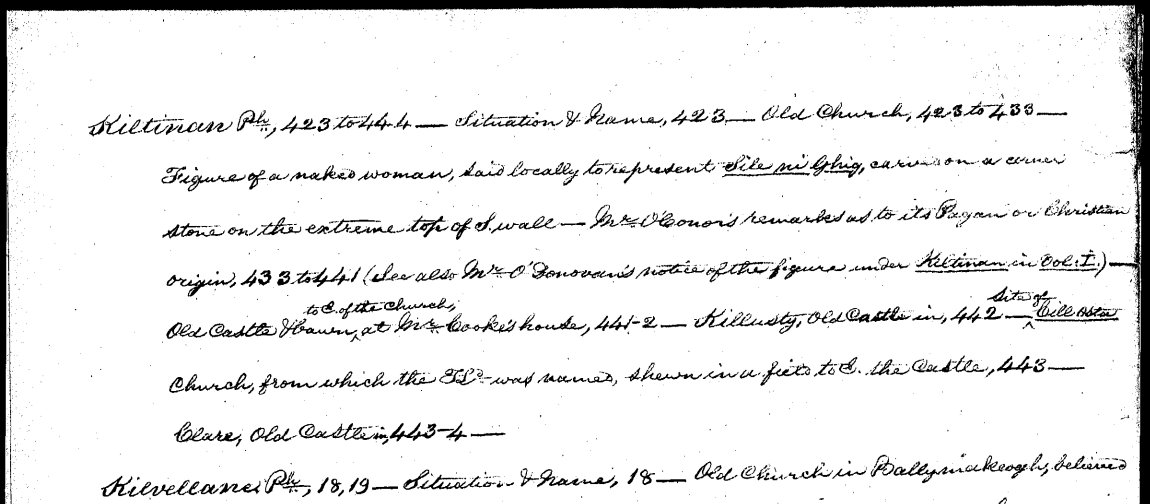 Kiltinan Ph., 423 to 444 — Situation & Name, 423 — Old Church, 423 to 433 —
Figure of a naked woman, said locally to represent Sile ni Ghig, carved on a corner
stone on the extreme top of S. wall — Mr. O'Conor's remarks as to its Pagan or Christian
origin, 433 to 441 (See also Mr. O'Donovan's notice of the figure under Kiltinan in Vol. I.) —
to E. of the Church,
Site of
Old Castle & Bawn, at Mr. Cooke's house, 441-2 — Killusty, Old Castle in, 442 — Cill Osta
Church, from which the TLd. was named, shewn in a field to E. the Castle, 443 —
Clare, Old Castle in, 443-4 —
Kilvellane Ph., 18, 19 — Situation & Name, 18 — Old Church in Ballymakeogh, believed